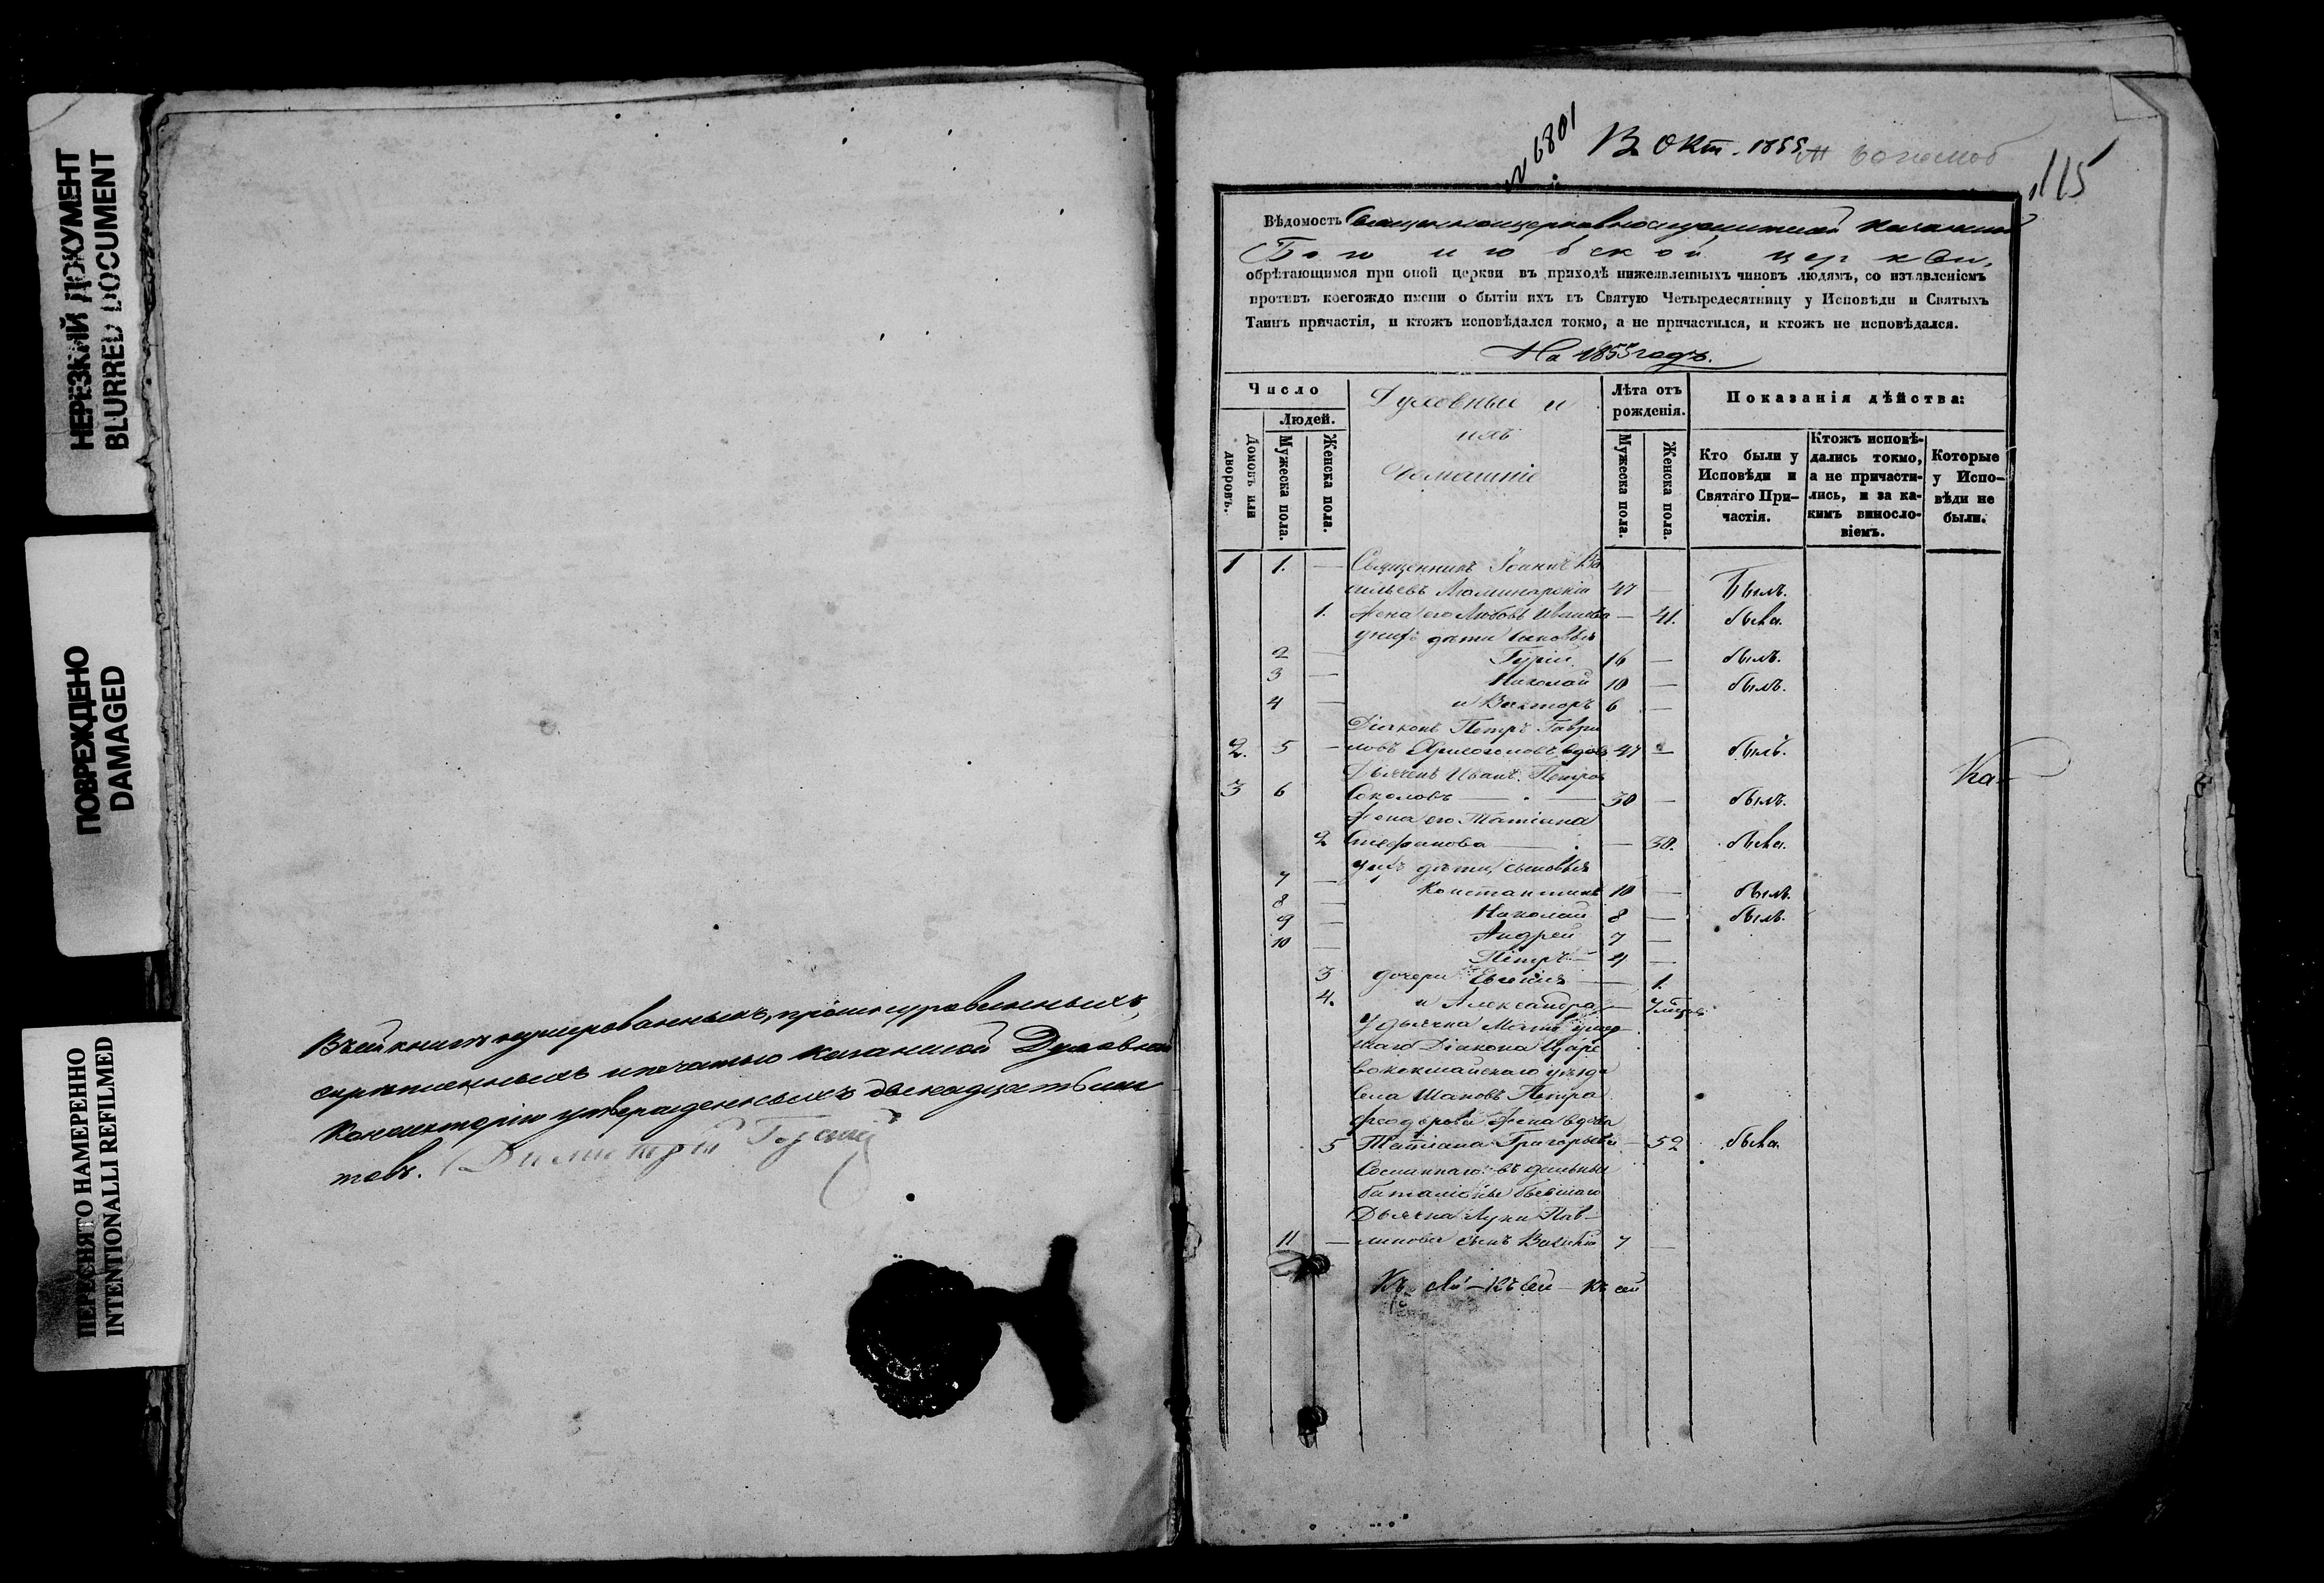 НЕРЕЗКИЙ ДОКУМЕНТ
BLURRED DOCUMENT
ПОВРЕЖДЕНО
DAMAGED
ПЕРЕСНЯТО НАМЕРЕННО
INTENTIONALLI REFILMED
Въ сей книгѣ нумерованныхъ, прошнурованныхъ,
скрѣпленныхъ и печатью Казанской Духовной
Консисторіи утвержденныхъ двенадцать лис
товъ.
№ 6801
В Окт. 1855
115
Вѣдомость Казанской
церкви,
обрѣтающимся при оной церкви въ приходѣ нижеявленныхъ чиновъ людямъ, со изъявленіемъ
противъ коегождо имени о бытіи ихъ въ Святую Четыредесятницу у Исповѣди и Святыхъ
Таинъ причастія, и ктожъ исповѣдался токмо, а не причастился, и ктожъ не исповѣдался.
На 1855 годъ.
Число
Людей.
Домовъ или дворовъ.
Мужеска пола.
Женска пола.
Духовные и
ихъ
домашніе
Лѣта отъ рожденія.
Мужеска пола.
Женска пола.
Показанія дѣйства:
Кто были у Исповѣди и Святаго Причастія.
Ктожъ исповѣдались токмо, а не причастились, и за какимъ винословіемъ.
Которые у Исповѣди не были.
1 1. — Священникъ Іоаннъ Ва
сильевъ Люминарскій 47 — Былъ.
1. Жена его Любовь Иванова — 41. была.
у нихъ дети сыновья
2 — Гурій 16 — былъ.
3 — Николай 10 — былъ.
4 — и Викторъ 6 —
Діаконъ Петръ Гаври
2. 5 — ловъ вдовъ 47 — былъ.
Дьячекъ Иванъ Петров
3 6 Соколовъ — 30 — былъ.
Жена его Татіана
2 Стефанова — — 30. была.
у нихъ дѣти, сыновья
7 — Константинъ 10 — былъ.
8 — Николай 8 — былъ.
9 — Андрей 7 —
10 — Петръ — 4 —
3 дочери Евгенія — 1.
4. и Александра —
У дьячка Мать умер
шаго Діакона Царе
вококшайскаго уѣзда
села Петра
Феодорова жена вдова
5 Татіана Григорьева — 52 была.
Сосланнаго въ
баталіоны бывшаго
Дьячка Луки Пав
11 — линова сынъ Василій 7 —
Къ сей — Къ сей — Къ сей
Ка-